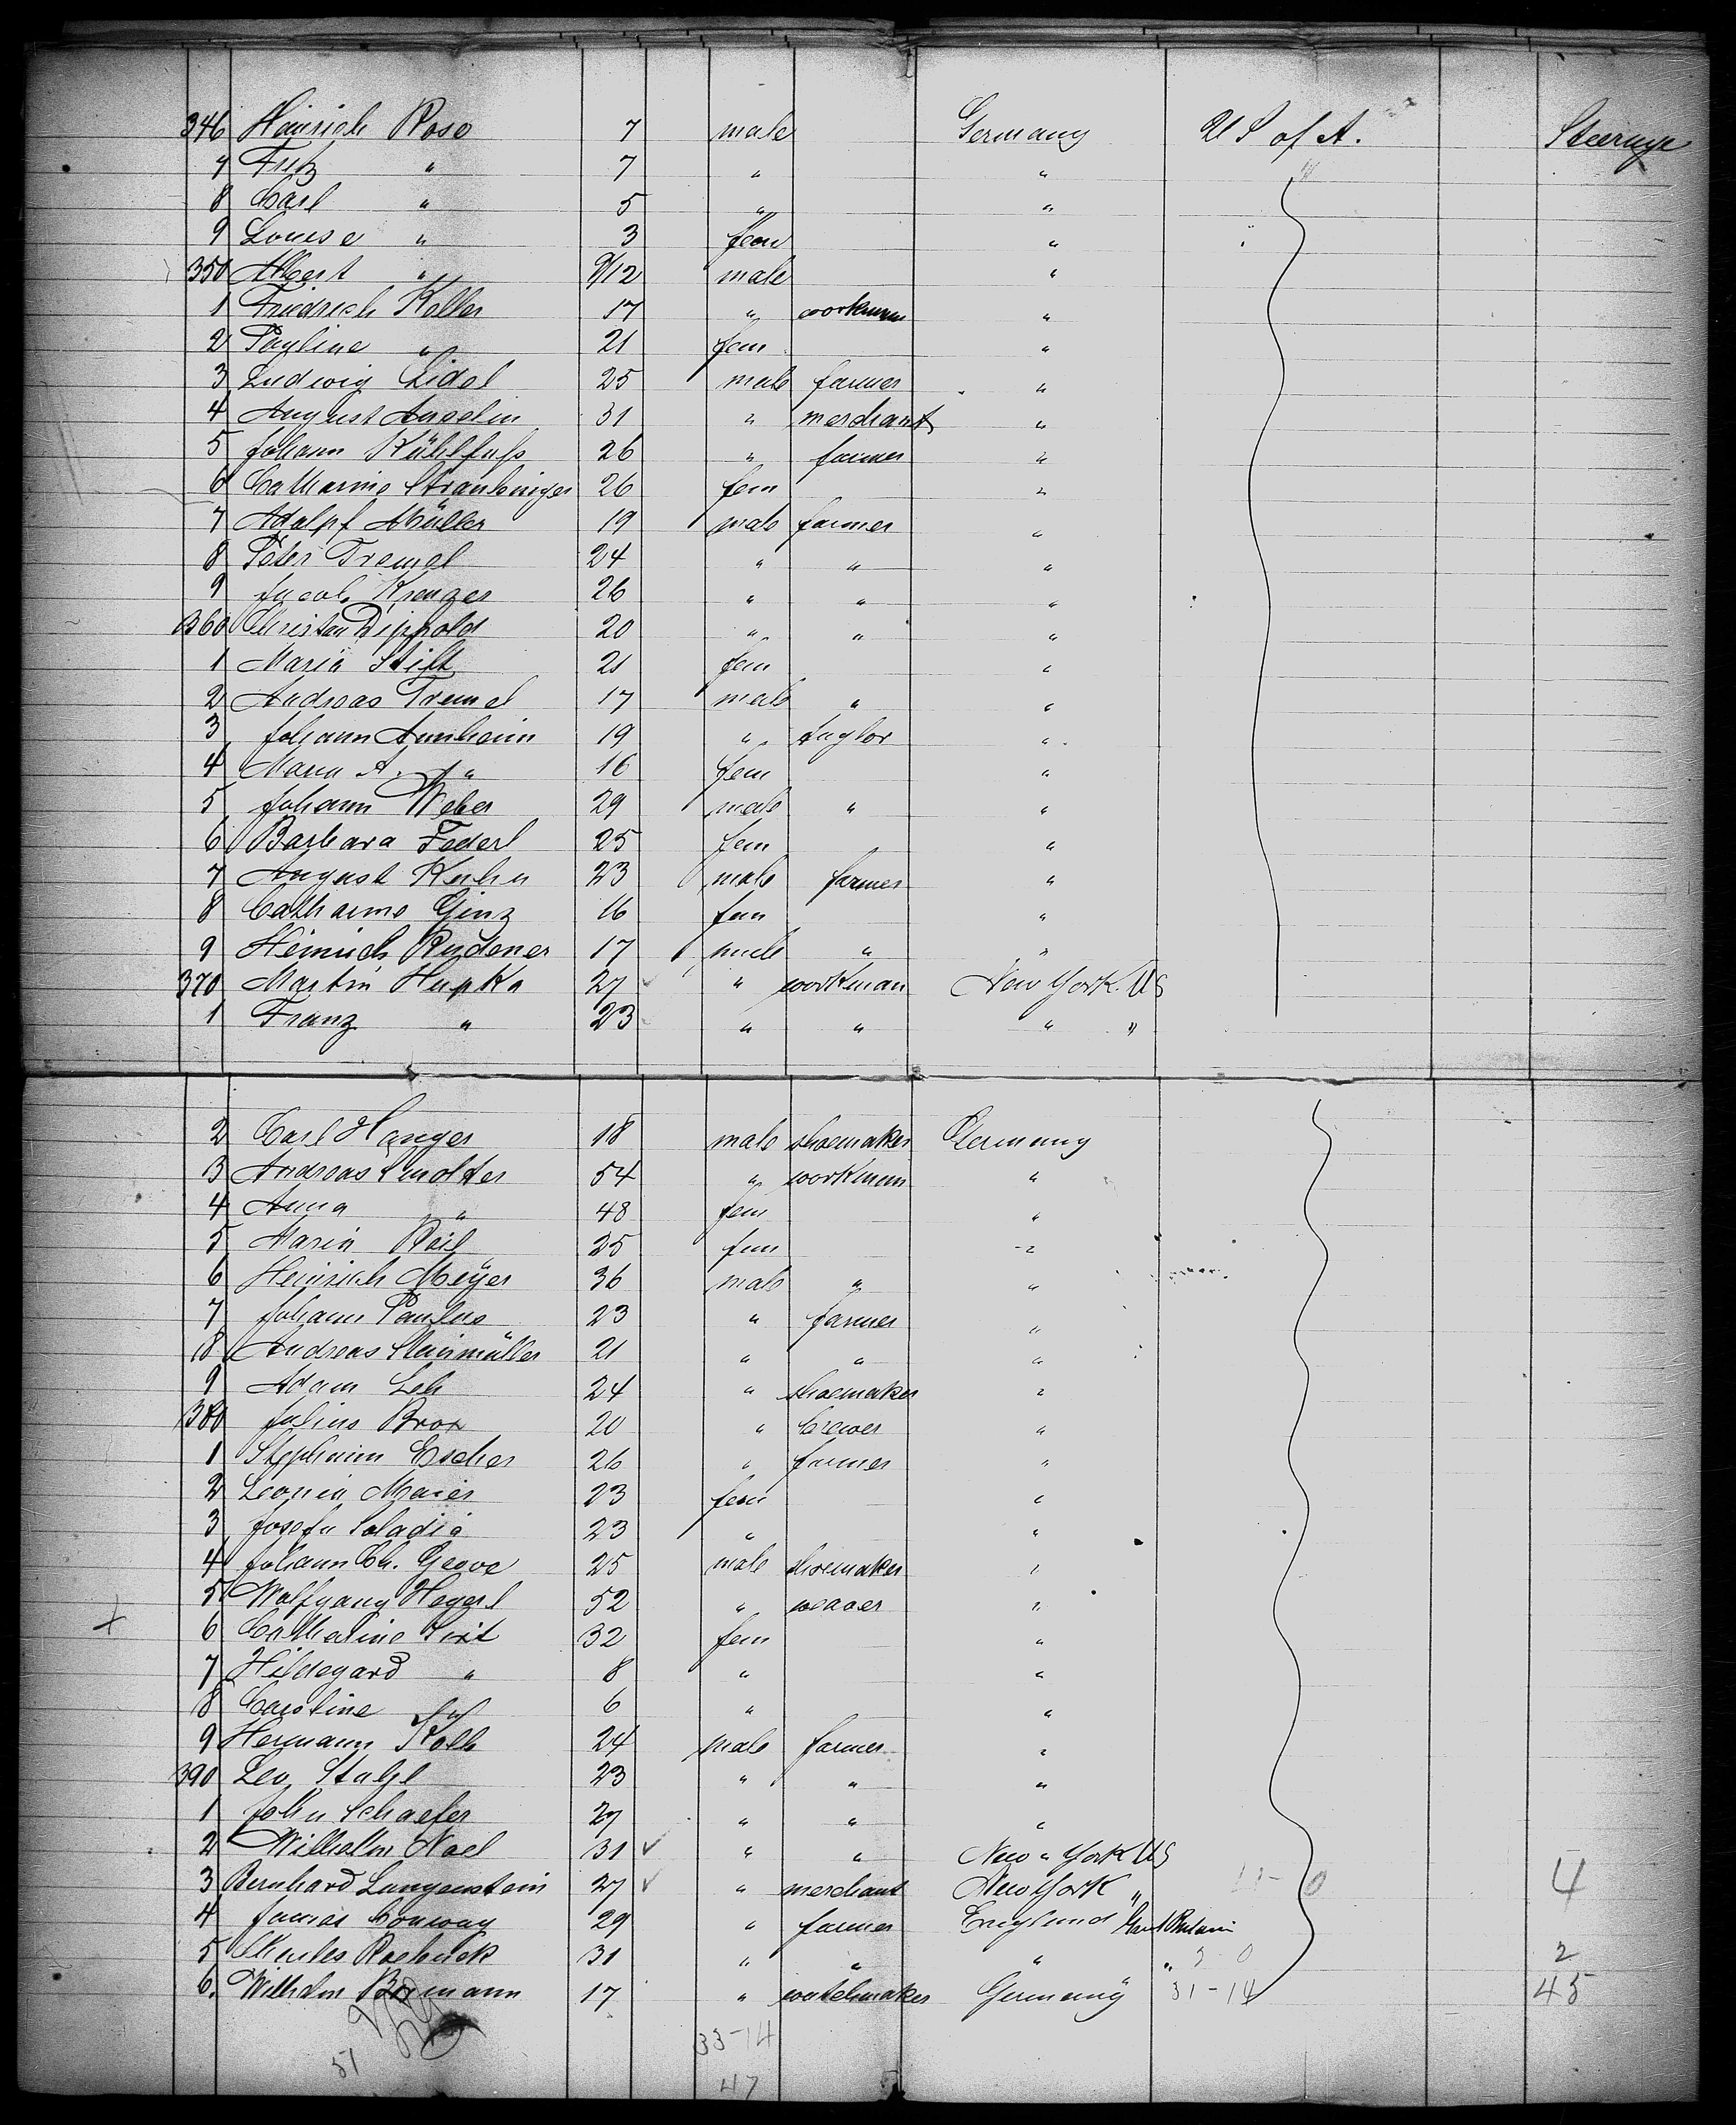 346 Heinrich Rose 7 male Germany U S of A. Steerage
7 Fritz " 7 " "
8 Carl " 5 " "
9 Louise " 3 fem "
350 Albert " 9/12 male "
1 Friedrich Koller 17 " workman "
2 Pauline " 21 fem "
3 Ludwig Lidel 25 male farmer "
4 August Angelin 31 " merchant "
5 Johann Kühlfuss 26 " farmer "
6 Catharine Straubinger 26 fem "
7 Adolpf Müller 19 male farmer "
8 Peter Tremel 24 " " "
9 Jacob Kreuzer 26 " " "
360 Christian Dippold 20 " " "
1 Maria Stift 21 fem "
2 Andreas Tremel 17 male " "
3 Johann Armheim 19 " taylor "
4 Maria A. " 16 fem "
5 Johann Weber 29 male " "
6 Barbara Federl 25 fem "
7 August Kuhn 23 male farmer "
8 Catharine Ginz 16 fem "
9 Heinrich Rudener 17 male " "
370 Martin Hupka 27 " workman New York. US
1 Franz " 23 " " " "
2 Carl Hanger 18 male shoemaker Germany
3 Andreas 54 " workman "
4 Anna " 48 fem "
5 Maria Reil 25 fem "
6 Heinrich Meÿer 36 male " "
7 Johann Paulus 23 " farmer "
8 Andreas Steinmüller 21 " " "
9 Adam Leh 24 " shoemaker "
380 Julius Brox 20 " brewer "
1 Escher 26 " farmer "
2 Maier 23 fem "
3 Josefa Soladia 23 " "
4 Johann Ch. Grove 25 male shoemaker "
5 Wolfgang Hegerl 52 " weaver "
6 Catherine 32 fem "
7 Hildegard " 8 " "
8 Caroline " 6 " "
9 Hermann Kolb 24 male farmer "
390 Leo Stahl 23 " " "
1 John Schaefer 27 " " "
2 Wilhelm Noel 31 " " New York US
3 Bernhard Langenstein 27 " merchant New York " 4
4 James Conway 29 " farmer England Great Britain
5 Charles Roebuck 31 " " " " 2
6. Wilhelm Bormann 17 " watchmaker Germany 31-14 45
33-14
51
47